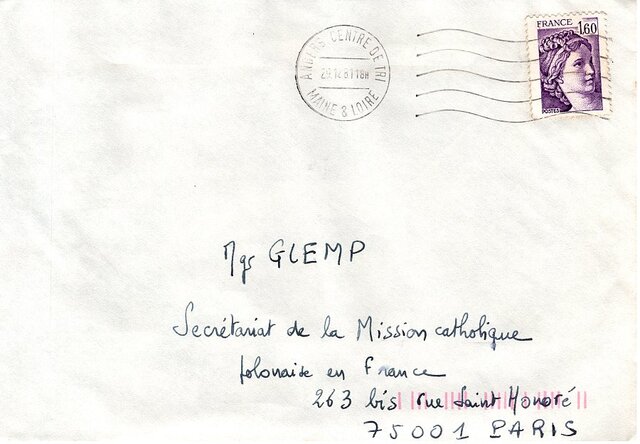 ANGERS CENTRE DE TRI
MAINE & LOIRE
FRANCE
1,60
POSTES
Mgr GLEMP
Secrétariat de la Mission catholique
polonaise en France
263 bis rue Saint Honoré
75001 PARIS